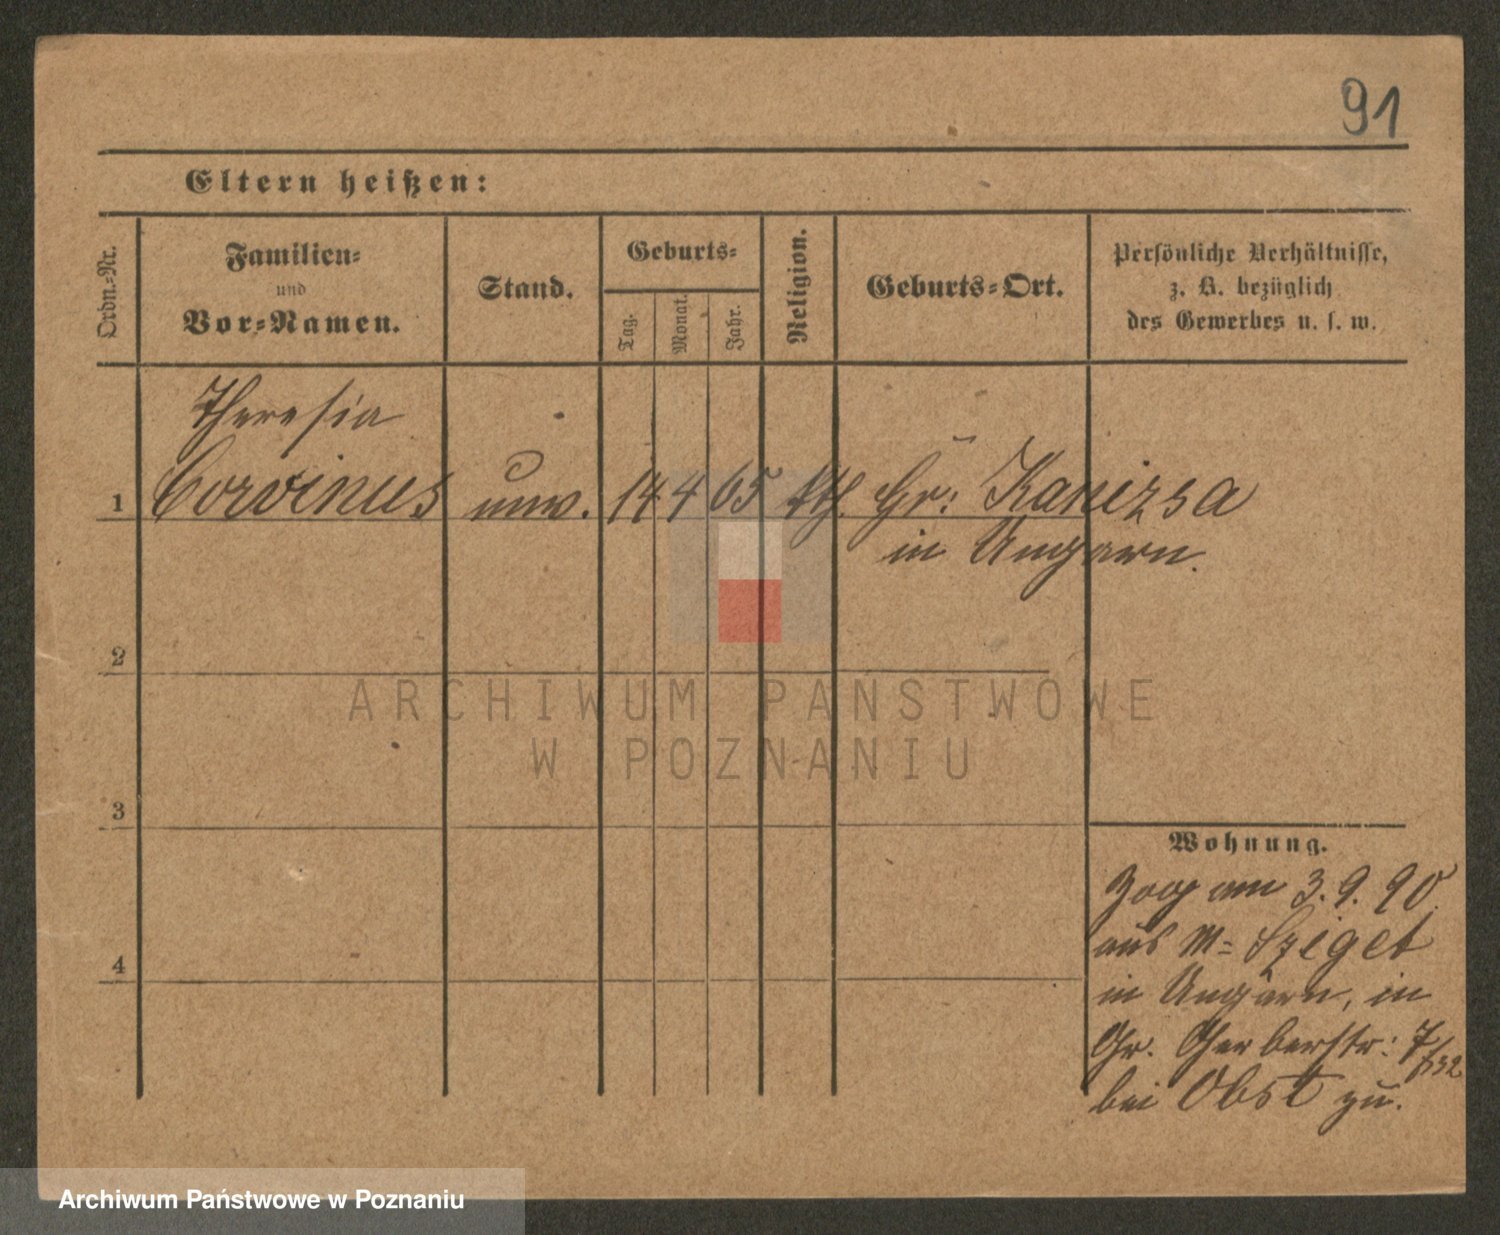 91
Eltern heißen:
Ordn.-Nr.
Familien-
und
Vor-Namen.
Stand.
Geburts-
Tag.
Monat.
Jahr.
Religion.
Geburts-Ort.
Persönliche Verhältnisse,
z. B. bezüglich
des Gewerbes u. s. w.
Theresia
1 Corvinus unv. 14 4 65 kth. Gr: Kanizsa
in Ungarn.
2
3
4
Wohnung.
Zog am 3.9.90
aus M= Sziget
in Ungarn, in
Gr. Gerberstr: 7/32
bei Obst zu.
ARCHIWUM PAŃSTWOWE
W POZNANIU
Archiwum Państwowe w Poznaniu